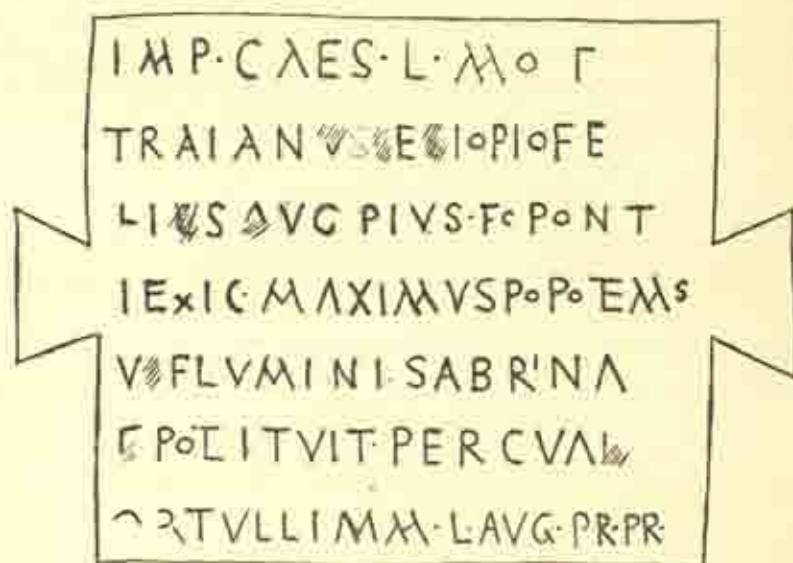 IMP·CAES·L·MO Γ
TRAIAN E IOPIOFE
LI S AVG PIVS·Fc PONT
IExIC·MAXIMVSPoPoTEMs
V FLVMINI·SABRINA
PoTITVIT·PERCVAL
TVLLIMM·L·AVG·PR·PR·